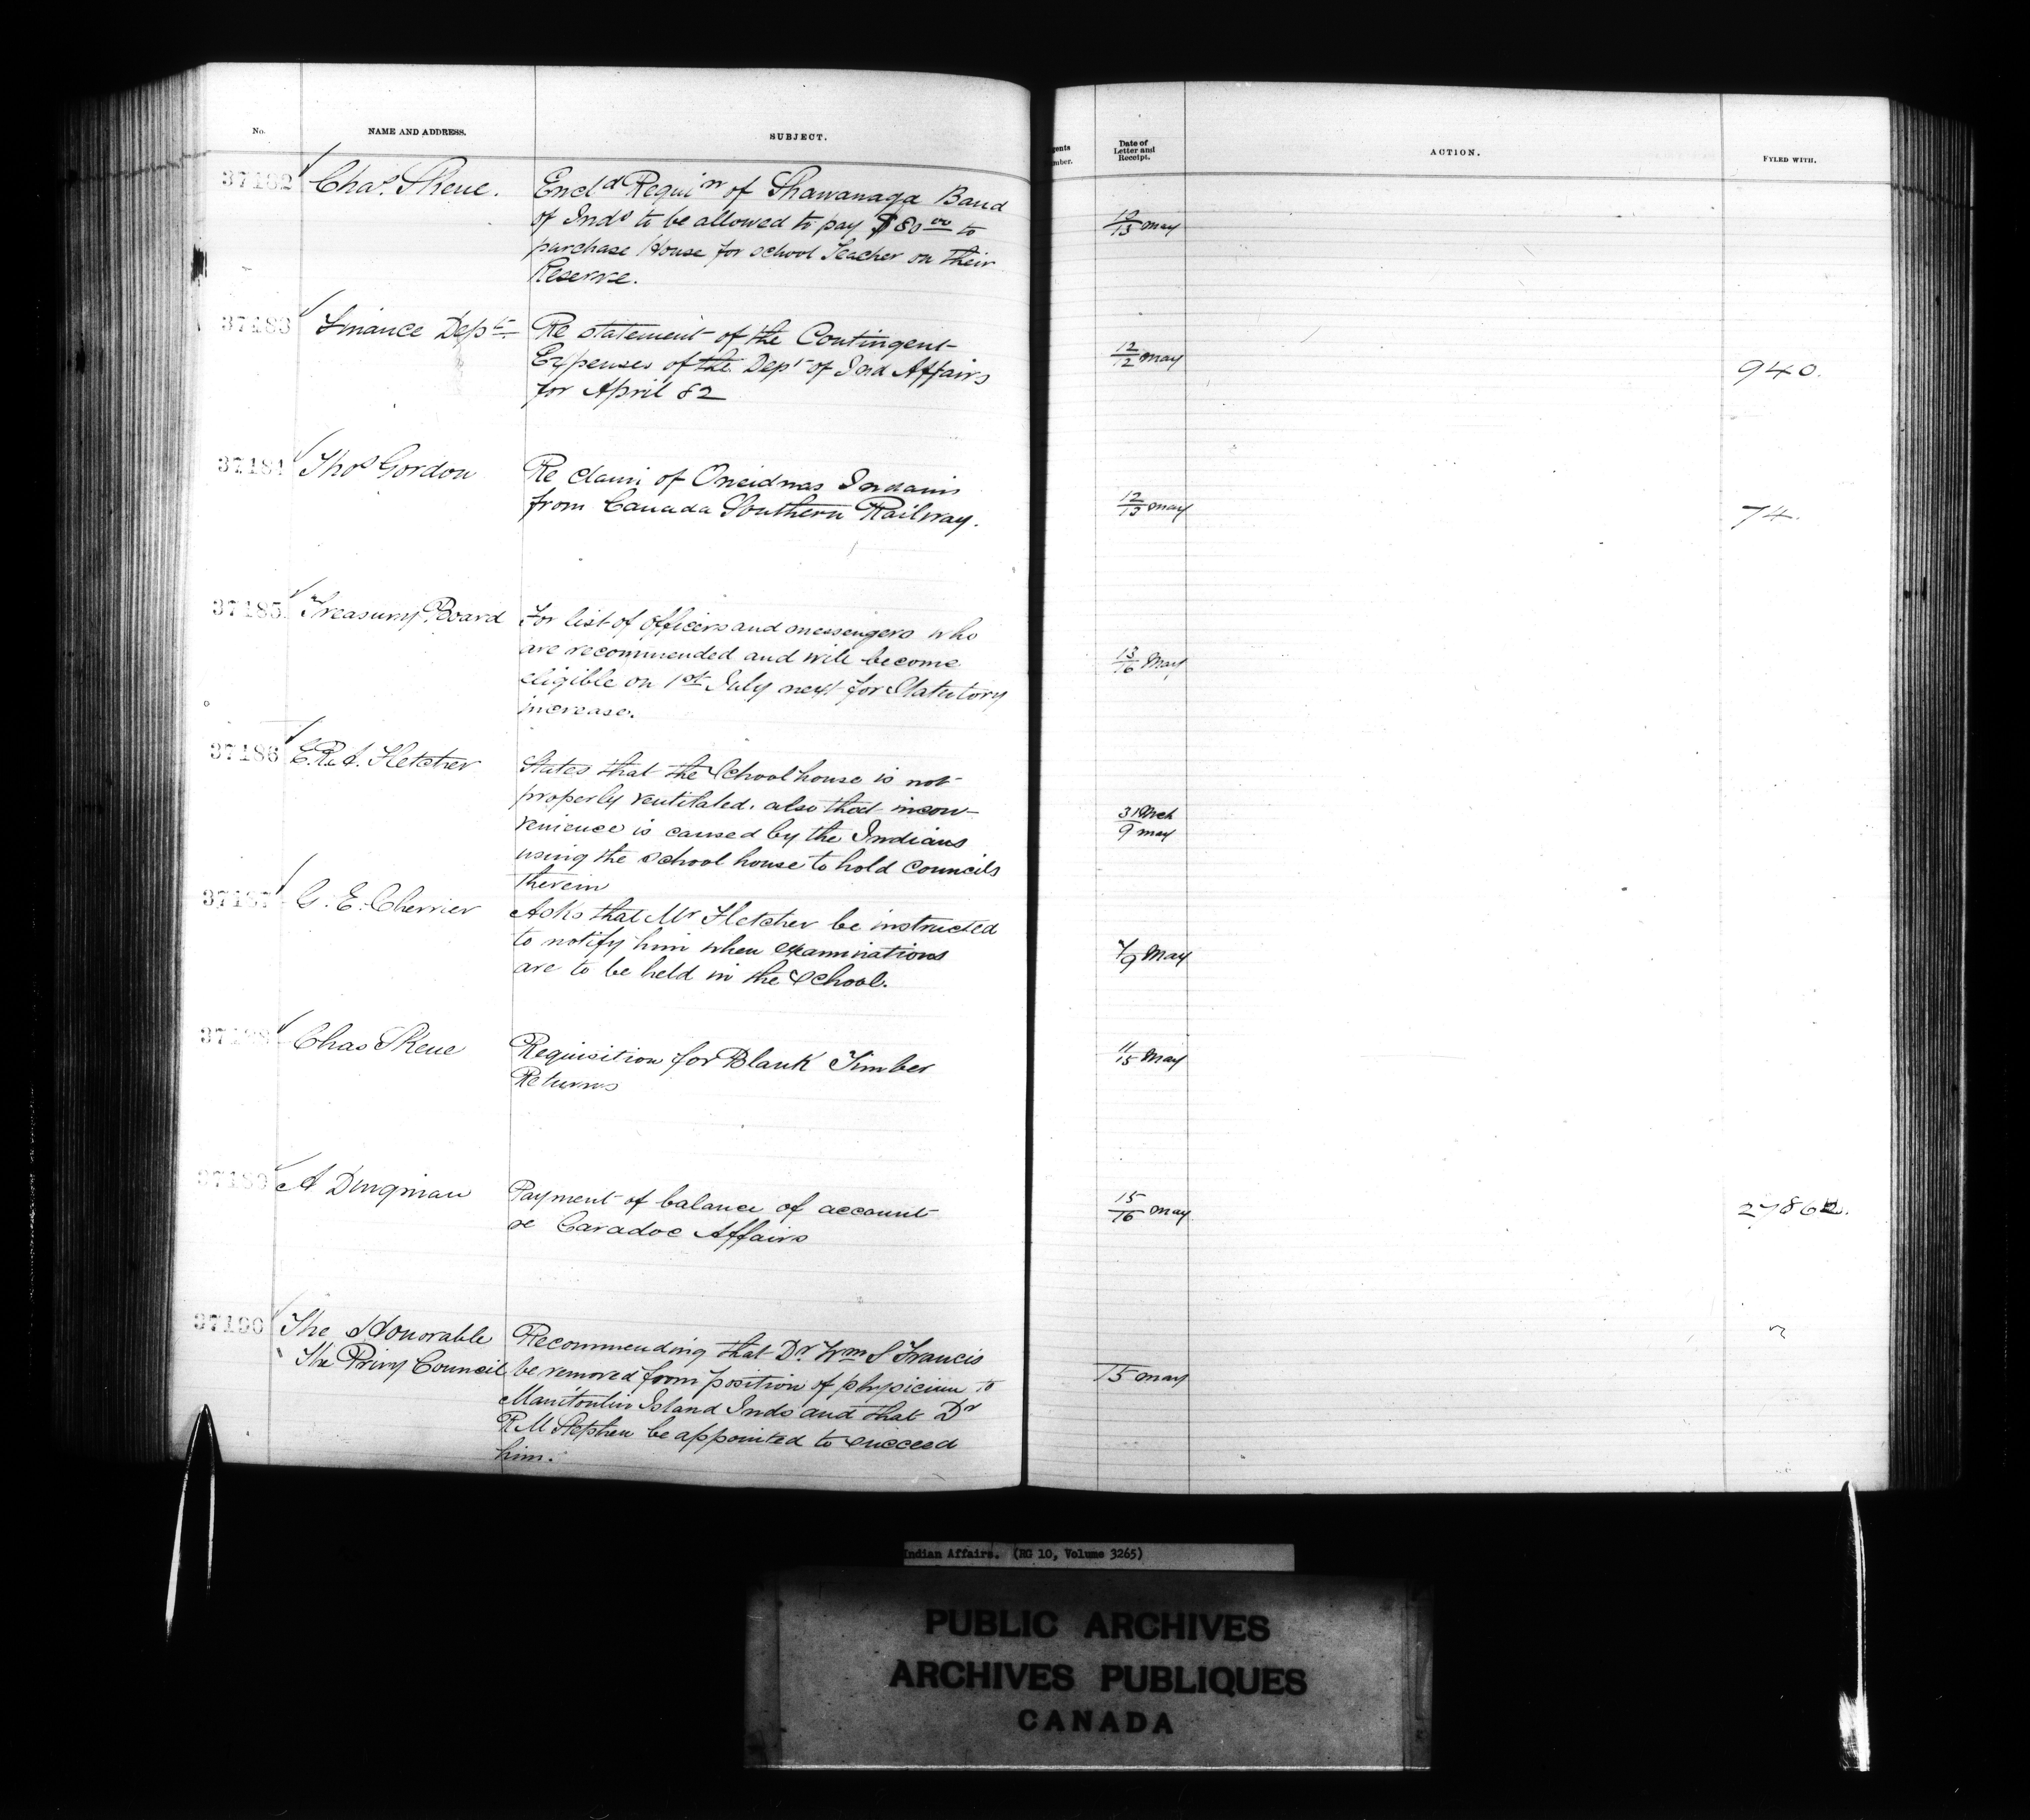 No.
NAME AND ADDRESS.
SUBJECT.
gents
mber.
Date of
Letter and
Receipt.
ACTION.
FYLED WITH.
37182
Chas. Skene.
Encld Requin of Shawanaga Band
of Inds to be allowed to pay $80 00 to
purchase House for school Teacher on their
Reserve.
15 May
37183
Finance Dept.
Re statement of the Contingent
Expenses of the Dept of Ind Affairs
for April 82
12/12 May
940.
37184
Thos Gordon
Re claim of Oneidnas Indians
from Canada Southern Railway.
12/15 May
74.
37185
Treasury Board
For list of officers and messengers who
are recommended and will become
eligible on 1st July next for Statutory
increase.
13/16 May
37186
E.R.A. Fletcher
States that the School house is not
properly ventilated. also that incon-
venience is caused by the Indians
using the school house to hold councils
therein
31 Mch
9 May
37187
G. E. Cherrier
Asks that Mr Fletcher be instructed
to notify him when examinations
are to be held in the School.
7/9 May
37188
Chas Skene
Requisition for Blank Timber
Returns
11/15 May
37189
A Dingman
Payment of balance of account
re Caradoc Affairs
15/16 May
27862.
37190
The Honorable
The Privy Council
Recommending that Dr Wm S Francis
be removed from position of physician to
Manitoulin Island Inds and that Dr
R M Stephen be appointed to succeed
him.
15 May
Indian Affairs. (RG 10, Volume 3265)
PUBLIC ARCHIVES
ARCHIVES PUBLIQUES
CANADA